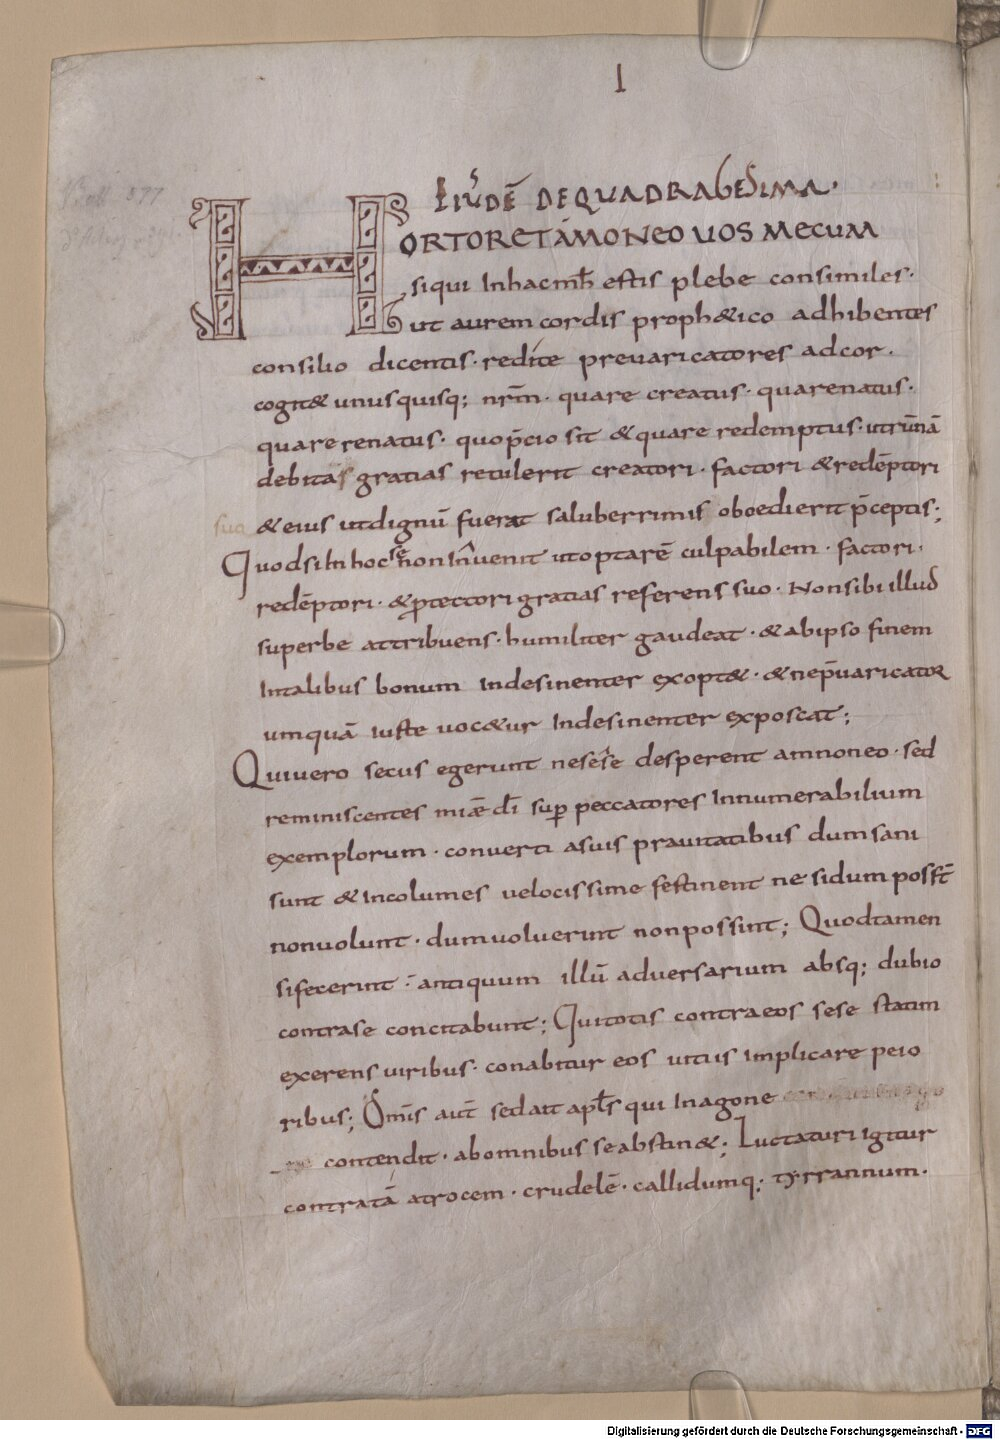 I
EIUSDĒ DE QUADRAGESIMA·
HORTOR ET AMONEO UOS MECUM
siqui Inhacmh̄ estis plebe consimiles·
ut aurem cordis proph&ico adhibentes
consilio dicentis· redite prevaricatores adcor·
cogit& unusquisq; nr̄m· quare creatus· quarenatus·
quare renatus· quo p̄cio sit & quare redemptus· utrūnā
debitas gratias retulerit creatori· factori & redēptori
& eius ut dignū fuerat saluberrimis oboedierit p̄ceptis;
Quodsi In hoc se non Inuenit ut optarē culpabilem· factori·
redēptori· & ꝓtectori gratias referens suo· Non sibi illud
superbe attribuens· humiliter gaudeat· & ab ipso finem
Intalibus bonum Indesinenter exopt&· & nep̄uaricator
umquā iuste uoc&ur Indesinenter exposcat;
Quiuero secus egerunt nesese desperent amnoneo· sed
reminiscentes miæ dī suꝑ peccatores Innumerabilium
exemplorum· converti asuis prauitatibus dum sani
sunt & Incolumes velocissime festinent ne sidum posst̄
nonuolunt· dumuoluerint nonpossint; Quodtamen
sifecerint· antiquum illū adversarium absq; dubio
contrase concitabunt; Qui totis contraeos sese statim
exerens uiribus· conabitur eos uitiis Implicare peio
ribus; Om̄is aut̄ sed ait apl̄s qui In agone
contendit· abomnibus se abstin&; Luctaturi igitur
contra tā atrocem· crudelē· callidumq; tyrrannum·
Digitalisierung gefördert durch die Deutsche Forschungsgemeinschaft - DFG